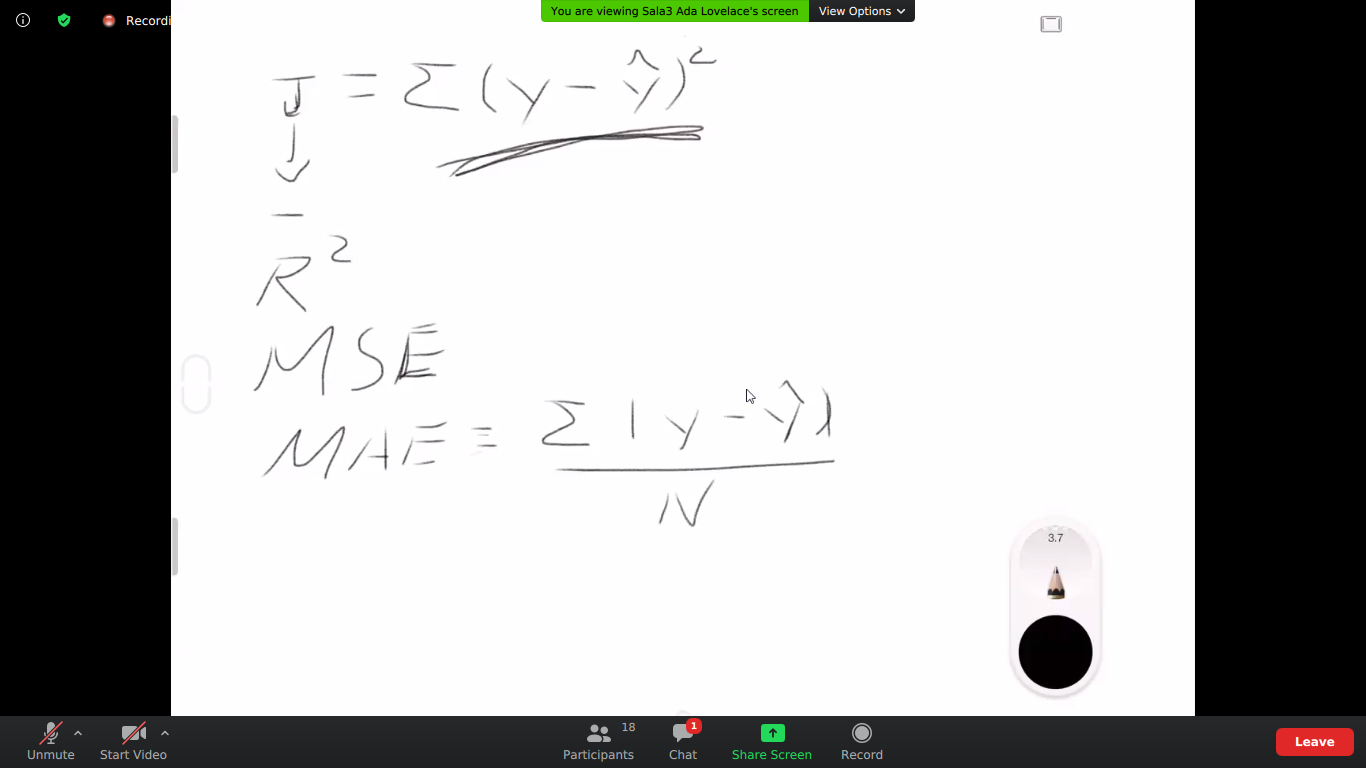 Recordi
You are viewing Sala3 Ada Lovelace's screen
View Options
J = Σ (y - ŷ)²
R²
MSE
MAE = Σ |y - ŷ|
N
3.7
Unmute
Start Video
Participants
18
Chat
1
Share Screen
Record
Leave